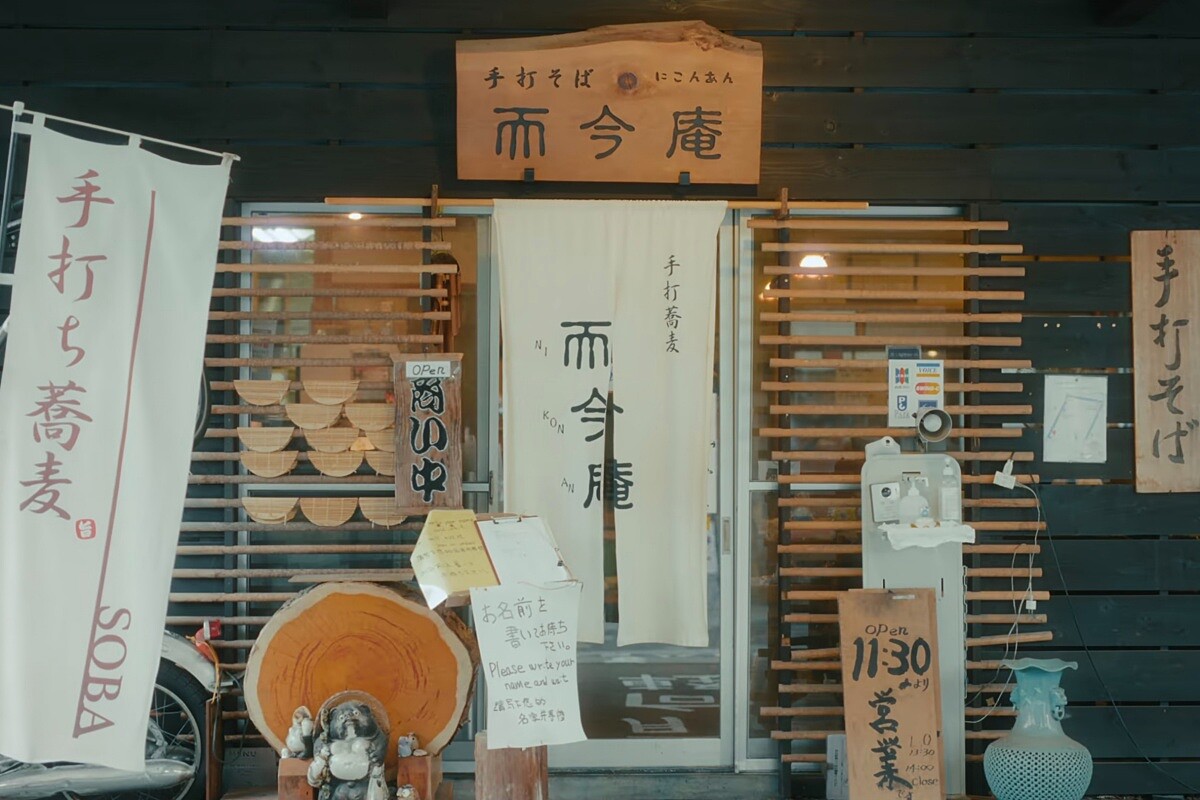 手打そば
にこんあん
而今庵
手打ち蕎麦
SOBA
手打蕎麦
而今庵
NI
KON
AN
OPEN
商い中
手打そば
お名前を
書いてお待ち
下さい。
Please write your
name and wait
OPEN
11:30
より
営業
L.O
14:00
Close
です